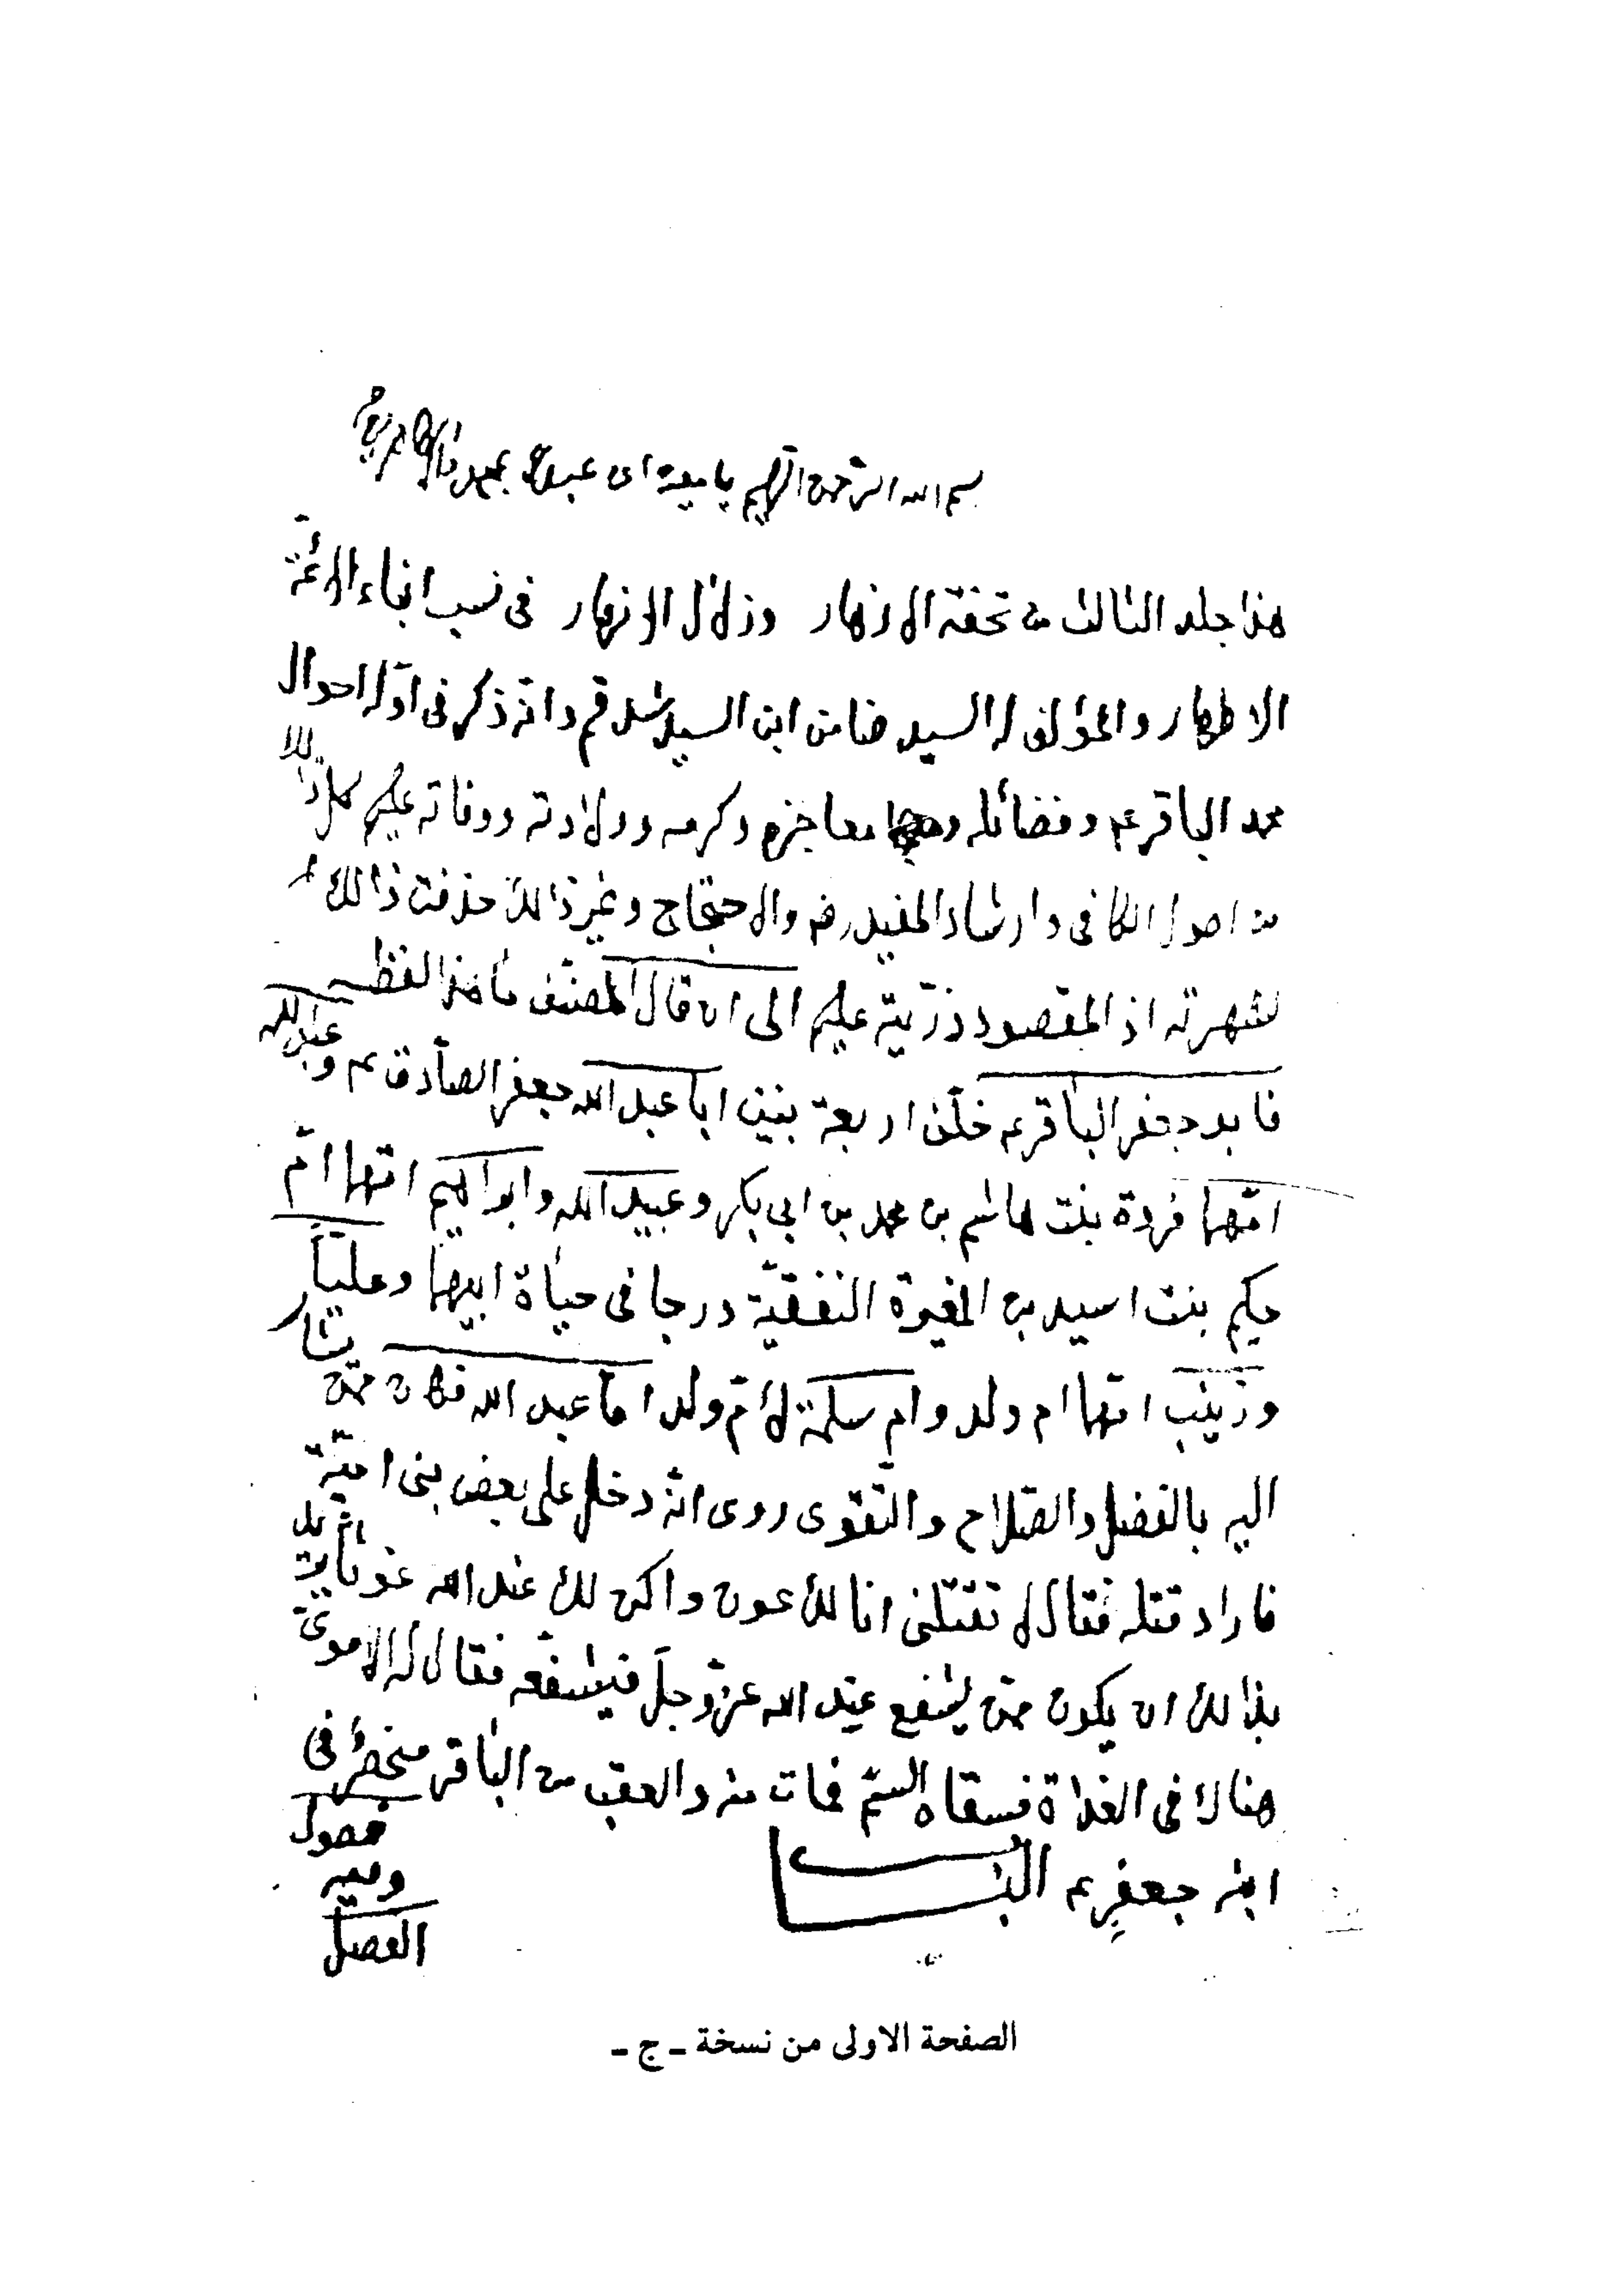 بسم الله الرحمن الرحيم
هذا جلد الثالث من تحفة الازهار وزلال الانهار فى نسب ابناء الائمة
الاطهار والمؤلف له السيد ضامن ابن السيد شدقم وانه ذكر فى اوله احوال
محمد الباقر عم وفضائله و معاجزه وكرمه وولادته ووفاته عليهم
من اصول الكافى وارشاد المفيد ره والاحتجاج وغير ذالك حذفت ذالك
لشهرته اذ المقصود ذريته عليهم الى ان قال المصنف ما هذا لفظه
فابو جعفر الباقر عم خلف اربعة بنين ابا عبد الله جعفر الصادق عم وعبد الله
امهما فروة بنت هاشم بن محمد بن ابى بكر وعبيد الله وابراهيم امهما ام
حكيم بنت اسيد بن المغيرة الثقفية درجا فى حياة ابيهما وعلياً
وزينب امهما ام ولد وام سلمة لام ولد اما عبد الله فكان ممن يشار
اليه بالفضل والصلاح والتقوى روى انه دخل على بعض بنى امية
فاراد قتله فقال لا تقتلنى انا لله عون واكن لك عند الله عوناً يريد
بذالك ان يكون ممن يشفع عند الله عز وجل فيشفعه فقال له الاموى
هناك فى الغداة فسقاه السم فمات منه والعقب من الباقر منحصر فى
ابنه جعفر عم الباب
وفيه
فصول
الفصل
الصفحة الاولى من نسخة ـ ج ـ